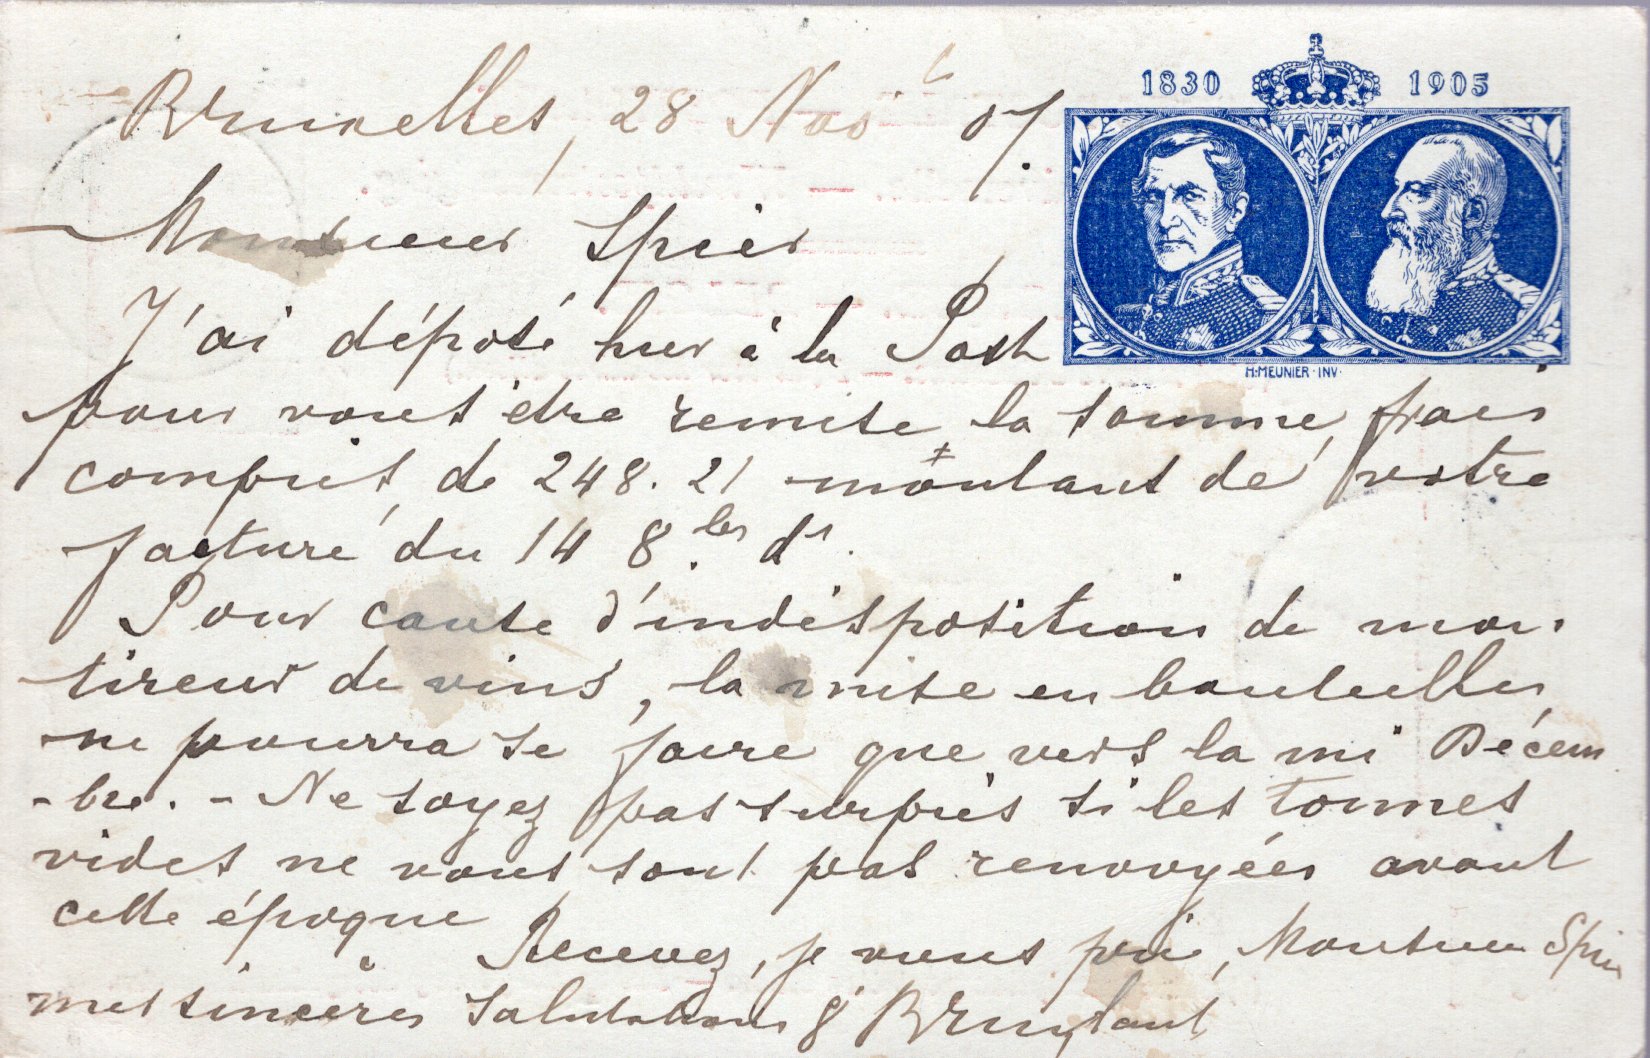 1830 1905
Bruxelles, 28 Nov 07.
H·MEUNIER·INV·
Monsieur Spier
J'ai déposé hier à la Poste
pour vous être remise la somme, frais
compris, de 248.21 montant de votre
facture du 14 8.bre dr.
Pour cause d'indisposition de mon
tireur de vins, la mise en bouteilles
ne pourra se faire que vers la mi Décem
-bre. - Ne soyez pas surpris si les tonnes
vides ne vous sont pas renvoyées avant
cette époque
Recevez, je vous prie, Monsieur Spier
mes sincères salutations G Bruylant